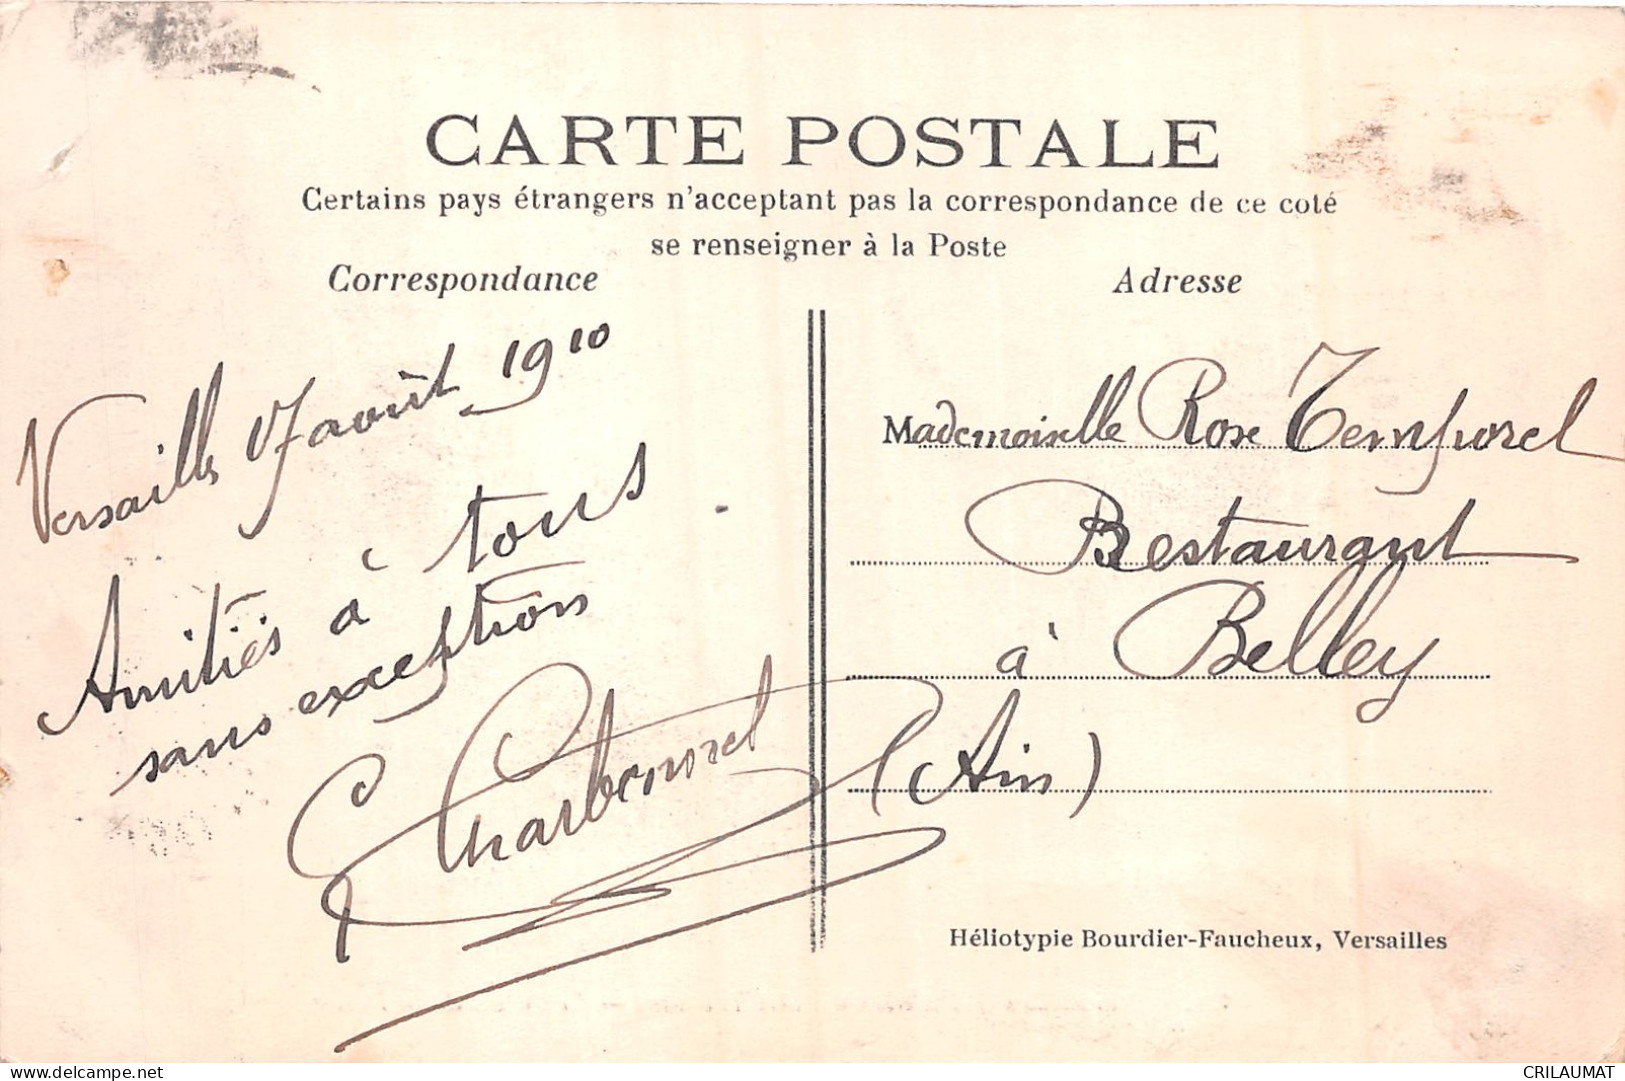 CARTE POSTALE
Certains pays étrangers n'acceptent pas la correspondance de ce coté
se renseigner à la Poste
Correspondance
Versailles 17 août 1910
Amitiés à tous
sans exception
Adresse
Mademoiselle Rose Temporel
Restaurant
à Belley
(Ain)
Héliotypie Bourdier-Faucheux, Versailles
delcampe.net
CRILAUMAT